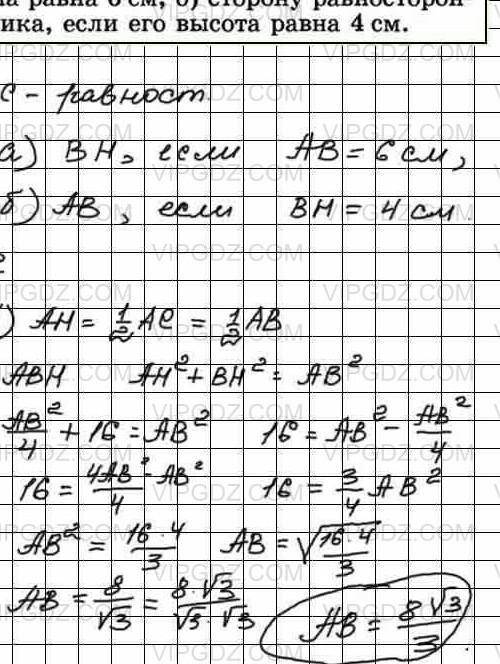 на равна 6 см; б) сторону равносторон-
ика, если его высота равна 4 см.
С - равност.
а) BH, если AB = 6 см,
б) AB, если BH = 4 см.
) AH = 1/2 AC = 1/2 AB
ABH AH² + BH² = AB²
AB²/4 + 16 = AB² 16 = AB² - AB²/4
16 = 4AB² - AB²/4 16 = 3/4 AB²
AB² = 16·4/3 AB = √16·4/3
AB = 8/√3 = 8·√3/√3·√3 AB = 8√3/3